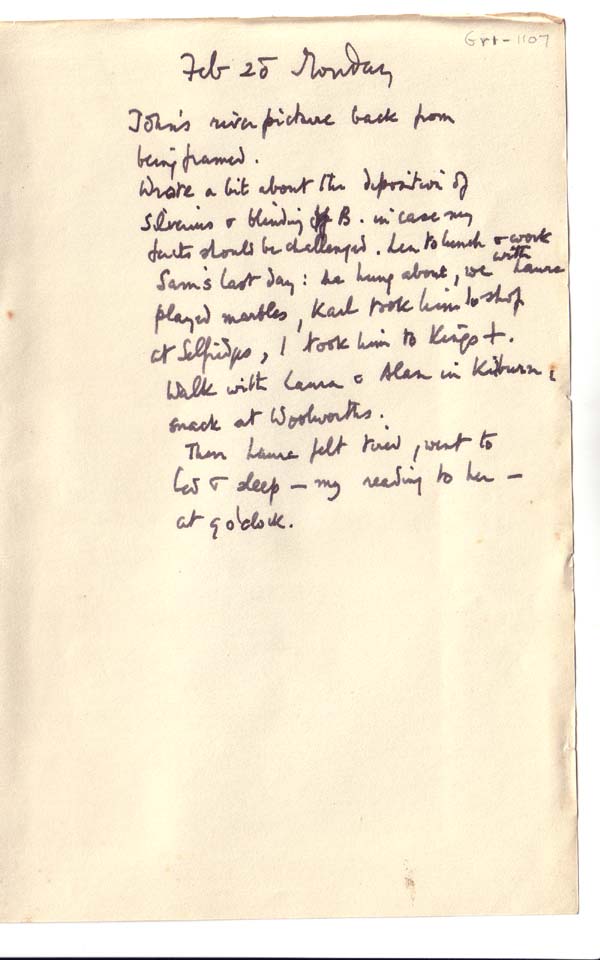 Grt-1107
Feb 25 Monday
John's river picture back from
being framed.
Wrote a bit about the deposition of
Silverius & blinding of B. in case my
facts should be challenged. Len to lunch & work
with Laura
Sam's last day: he hung about, we
played marbles, Karl took him to shop
at Selfridges, I took him to Kings +.
Walk with Laura & Alan in Kilburn:
snack at Woolworths.
Then Laura felt tired, went to
bed & sleep – my reading to her –
at 9 o'clock.